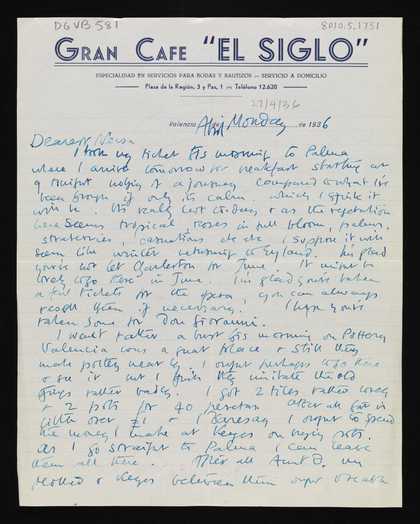 DGVB 581
8010.5.1751
GRAN CAFE "EL SIGLO"
ESPECIALIDAD EN SERVICIOS PARA BODAS Y BAUTIZOS — SERVICIO A DOMICILIO
Plaza de la Región, 3 y Paz, 1 — Teléfono 12.620
27/4/36
Valencia, April Monday de 1936
Dearest Nessa
I took my ticket this morning to Palma
where I arrive tomorrow for breakfast starting at
9 tonight nothing of a journey compared to what I've
been through if only its calm which I think it
will be. Its really hot today & as the vegetation
here seems tropical, roses in full bloom, palms,
strawberries, carnations etc etc I suppose it will
seem like winter returning to England. I'm glad
you've not let Charleston for June. It might be
lovely to go there in June. I'm glad you've taken
a few tickets for the opera, you can always
resell them if necessary. I hope you've
taken some for Don Giovanni.
I went rather a bust this morning on Pottery
Valencia was a great place & still they
make pottery near by. I ought perhaps to go there
& see it but I think they imitate the old
things rather badly. I got 2 tiles rather lovely
& 2 pots for 40 pesetas. After all for a
little over £1 & I ought to spend
the money I make at Reyes on buying pots.
As I go straight to Palma I can leave
them all there. After all Aunt D. my
Mother & Reyes between them ought to